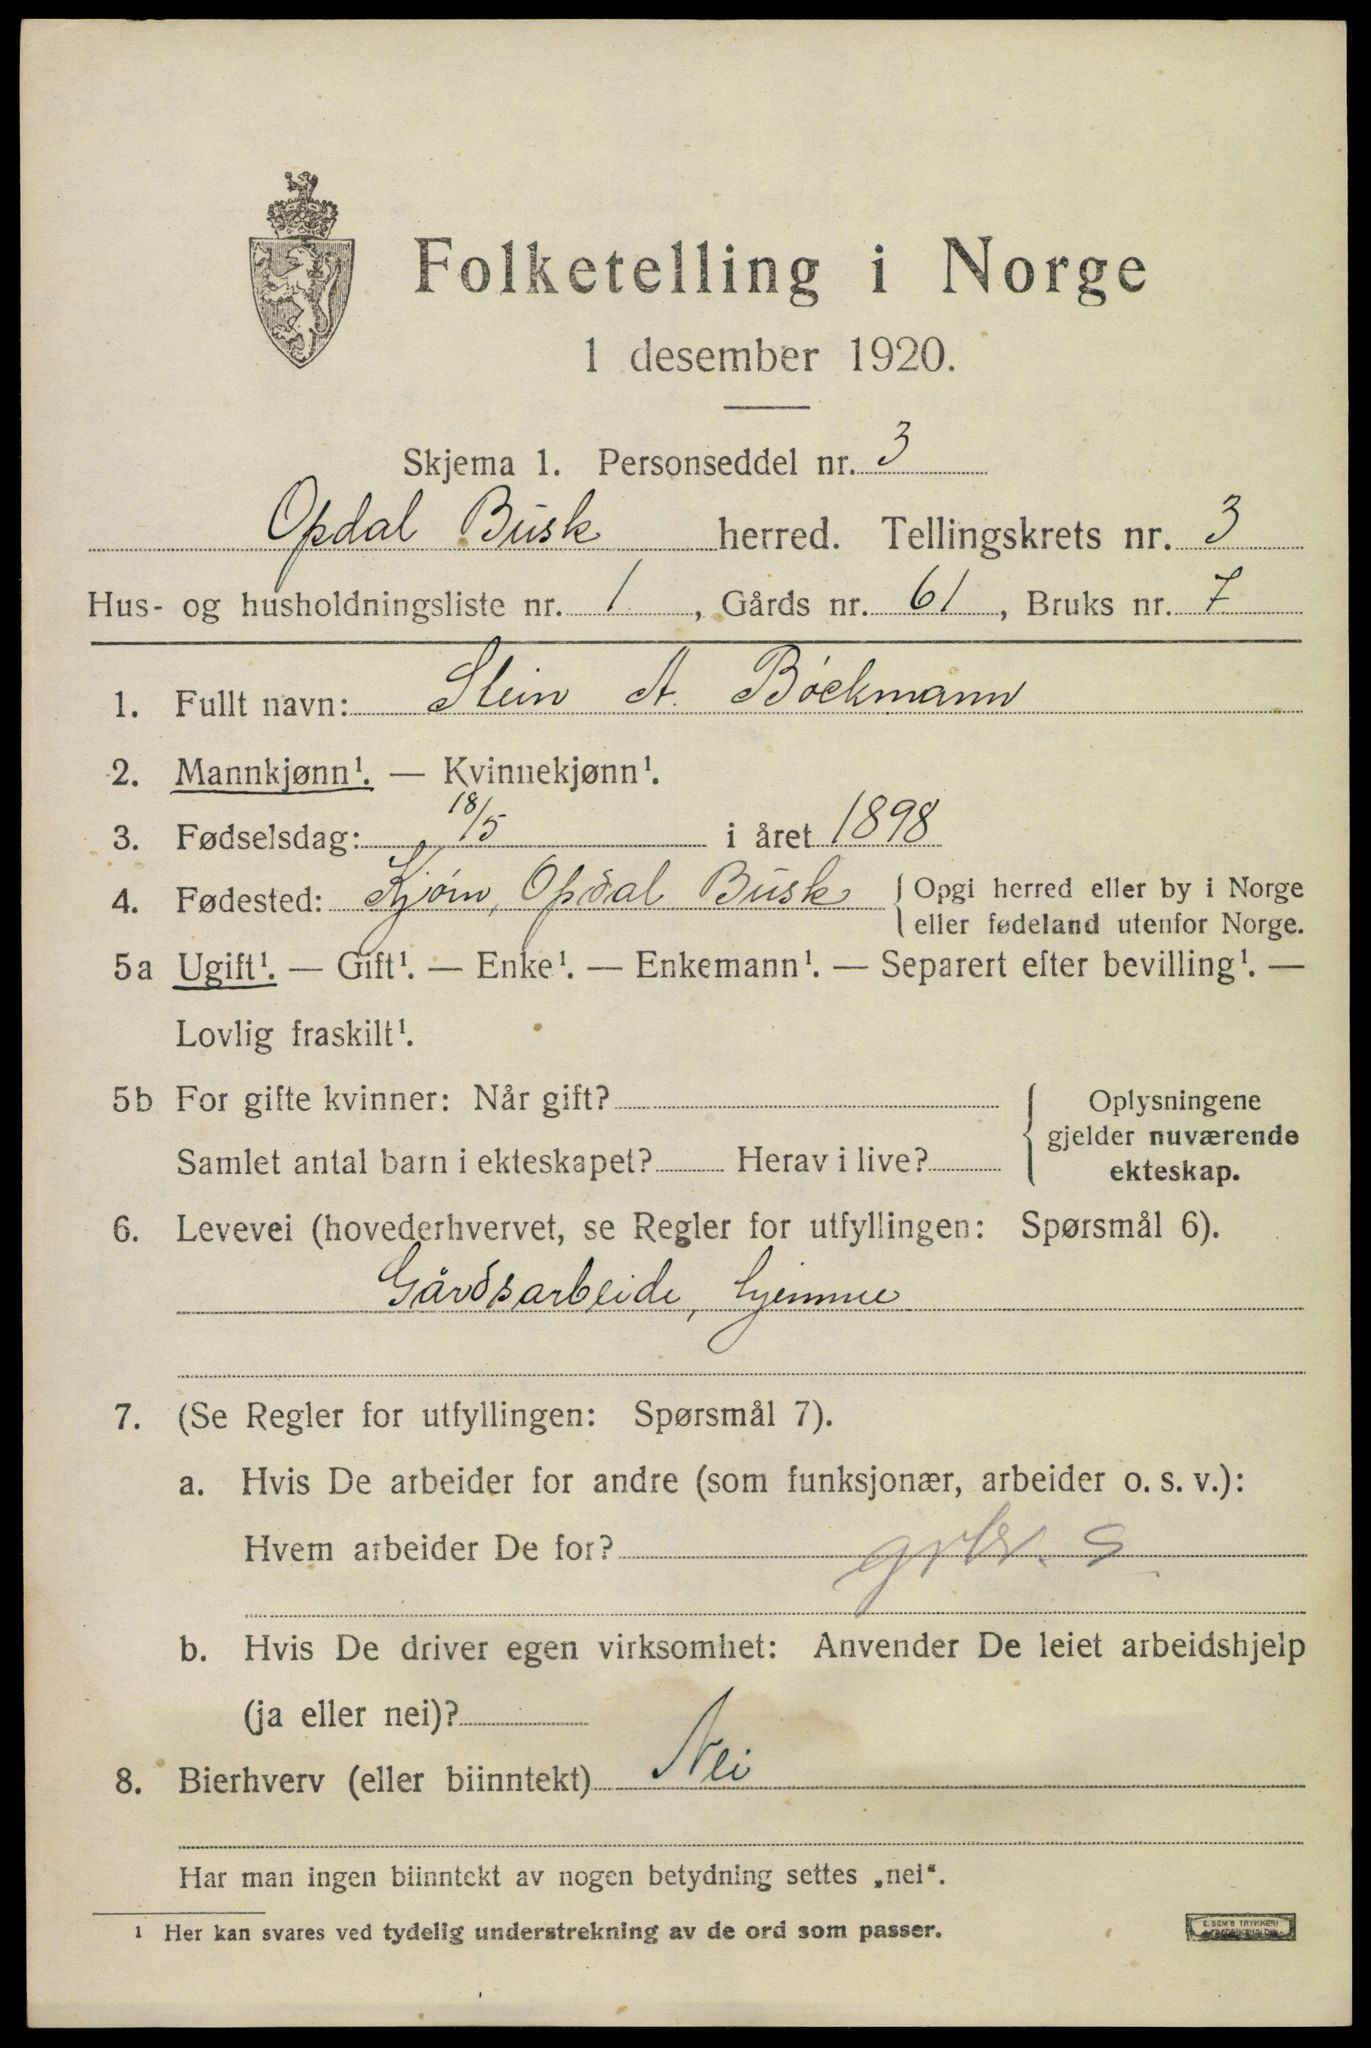 Folketelling i Norge
1 desember 1920.
Skjema 1. Personseddel nr. 3
Opdal Busk herred. Tellingskrets nr. 3
Hus- og husholdningsliste nr. 1, Gårds nr. 61, Bruks nr. 7
1. Fullt navn: Stein A. Bóekmann
2. Mannkjønn¹. — Kvinnekjønn¹.
3. Fødselsdag: 18/5 i året 1898
4. Fødested: Kjóm, Opdal Busk { Opgi herred eller by i Norge
eller fødeland utenfor Norge.
5a Ugift¹. — Gift¹. — Enke¹. — Enkemann¹. — Separert efter bevilling¹. —
Lovlig fraskilt¹.
5b For gifte kvinner: Når gift?
Samlet antal barn i ekteskapet? Herav i live?
{ Oplysningene
gjelder nuværende
ekteskap.
6. Levevei (hovederhvervet, se Regler for utfyllingen: Spørsmål 6).
Gårdsarbeide, hjemme
7. (Se Regler for utfyllingen: Spørsmål 7).
a. Hvis De arbeider for andre (som funksjonær, arbeider o. s. v.):
Hvem arbeider De for? grbr. S
b. Hvis De driver egen virksomhet: Anvender De leiet arbeidshjelp
(ja eller nei)?
8. Bierhverv (eller biinntekt) Nei
Har man ingen biinntekt av nogen betydning settes „nei“.
¹ Her kan svares ved tydelig understrekning av de ord som passer.